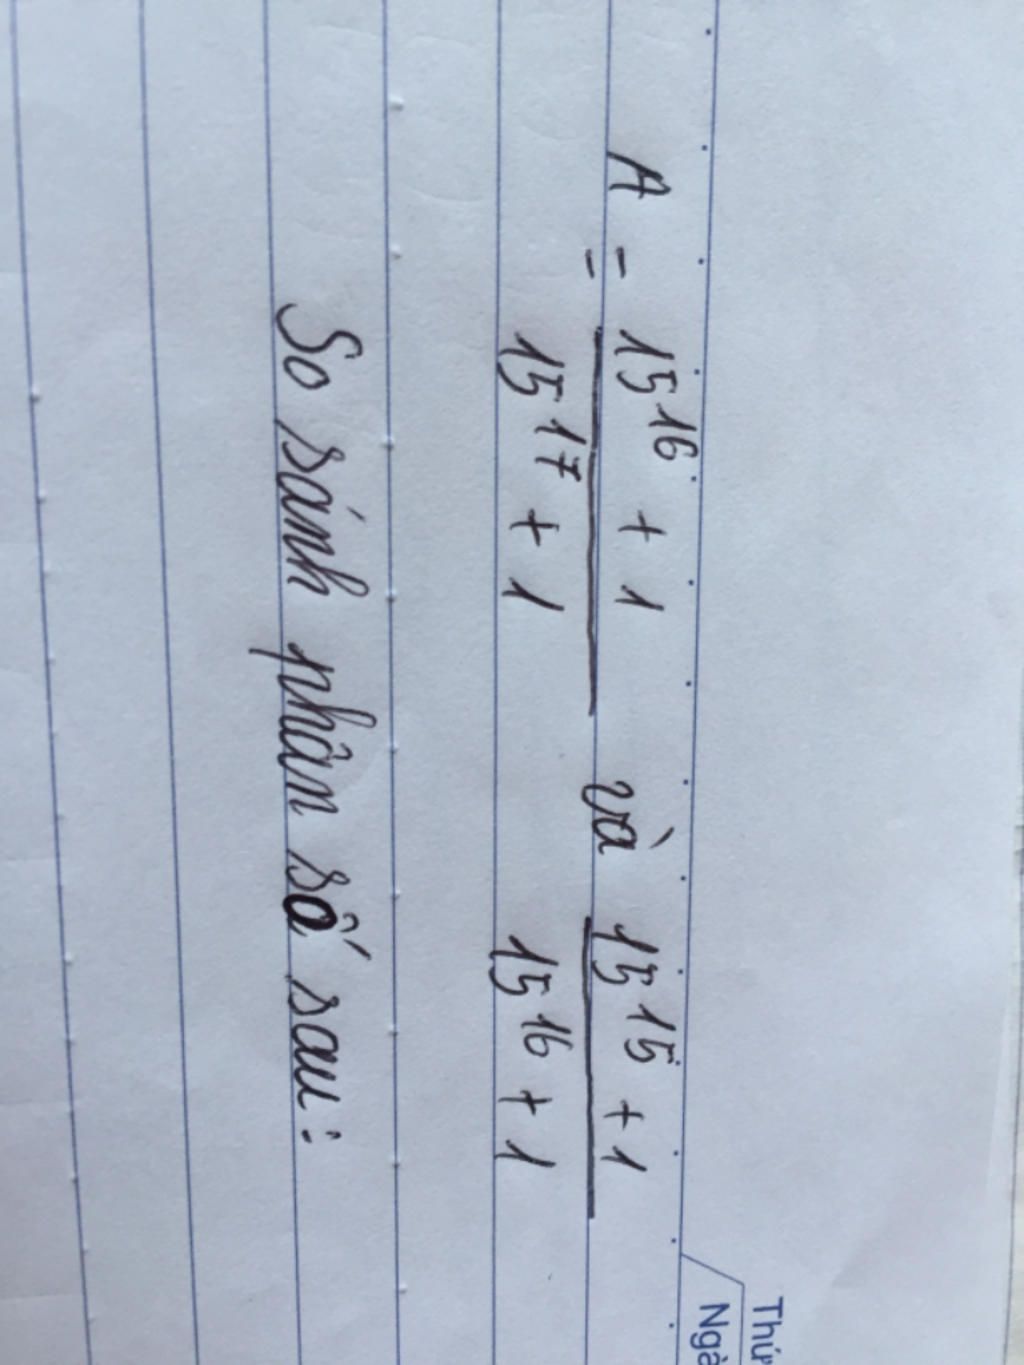 Thứ
Ngà
A = \frac{15^{16} + 1}{15^{17} + 1} và \frac{15^{15} + 1}{15^{16} + 1}
So sánh phân số sau :